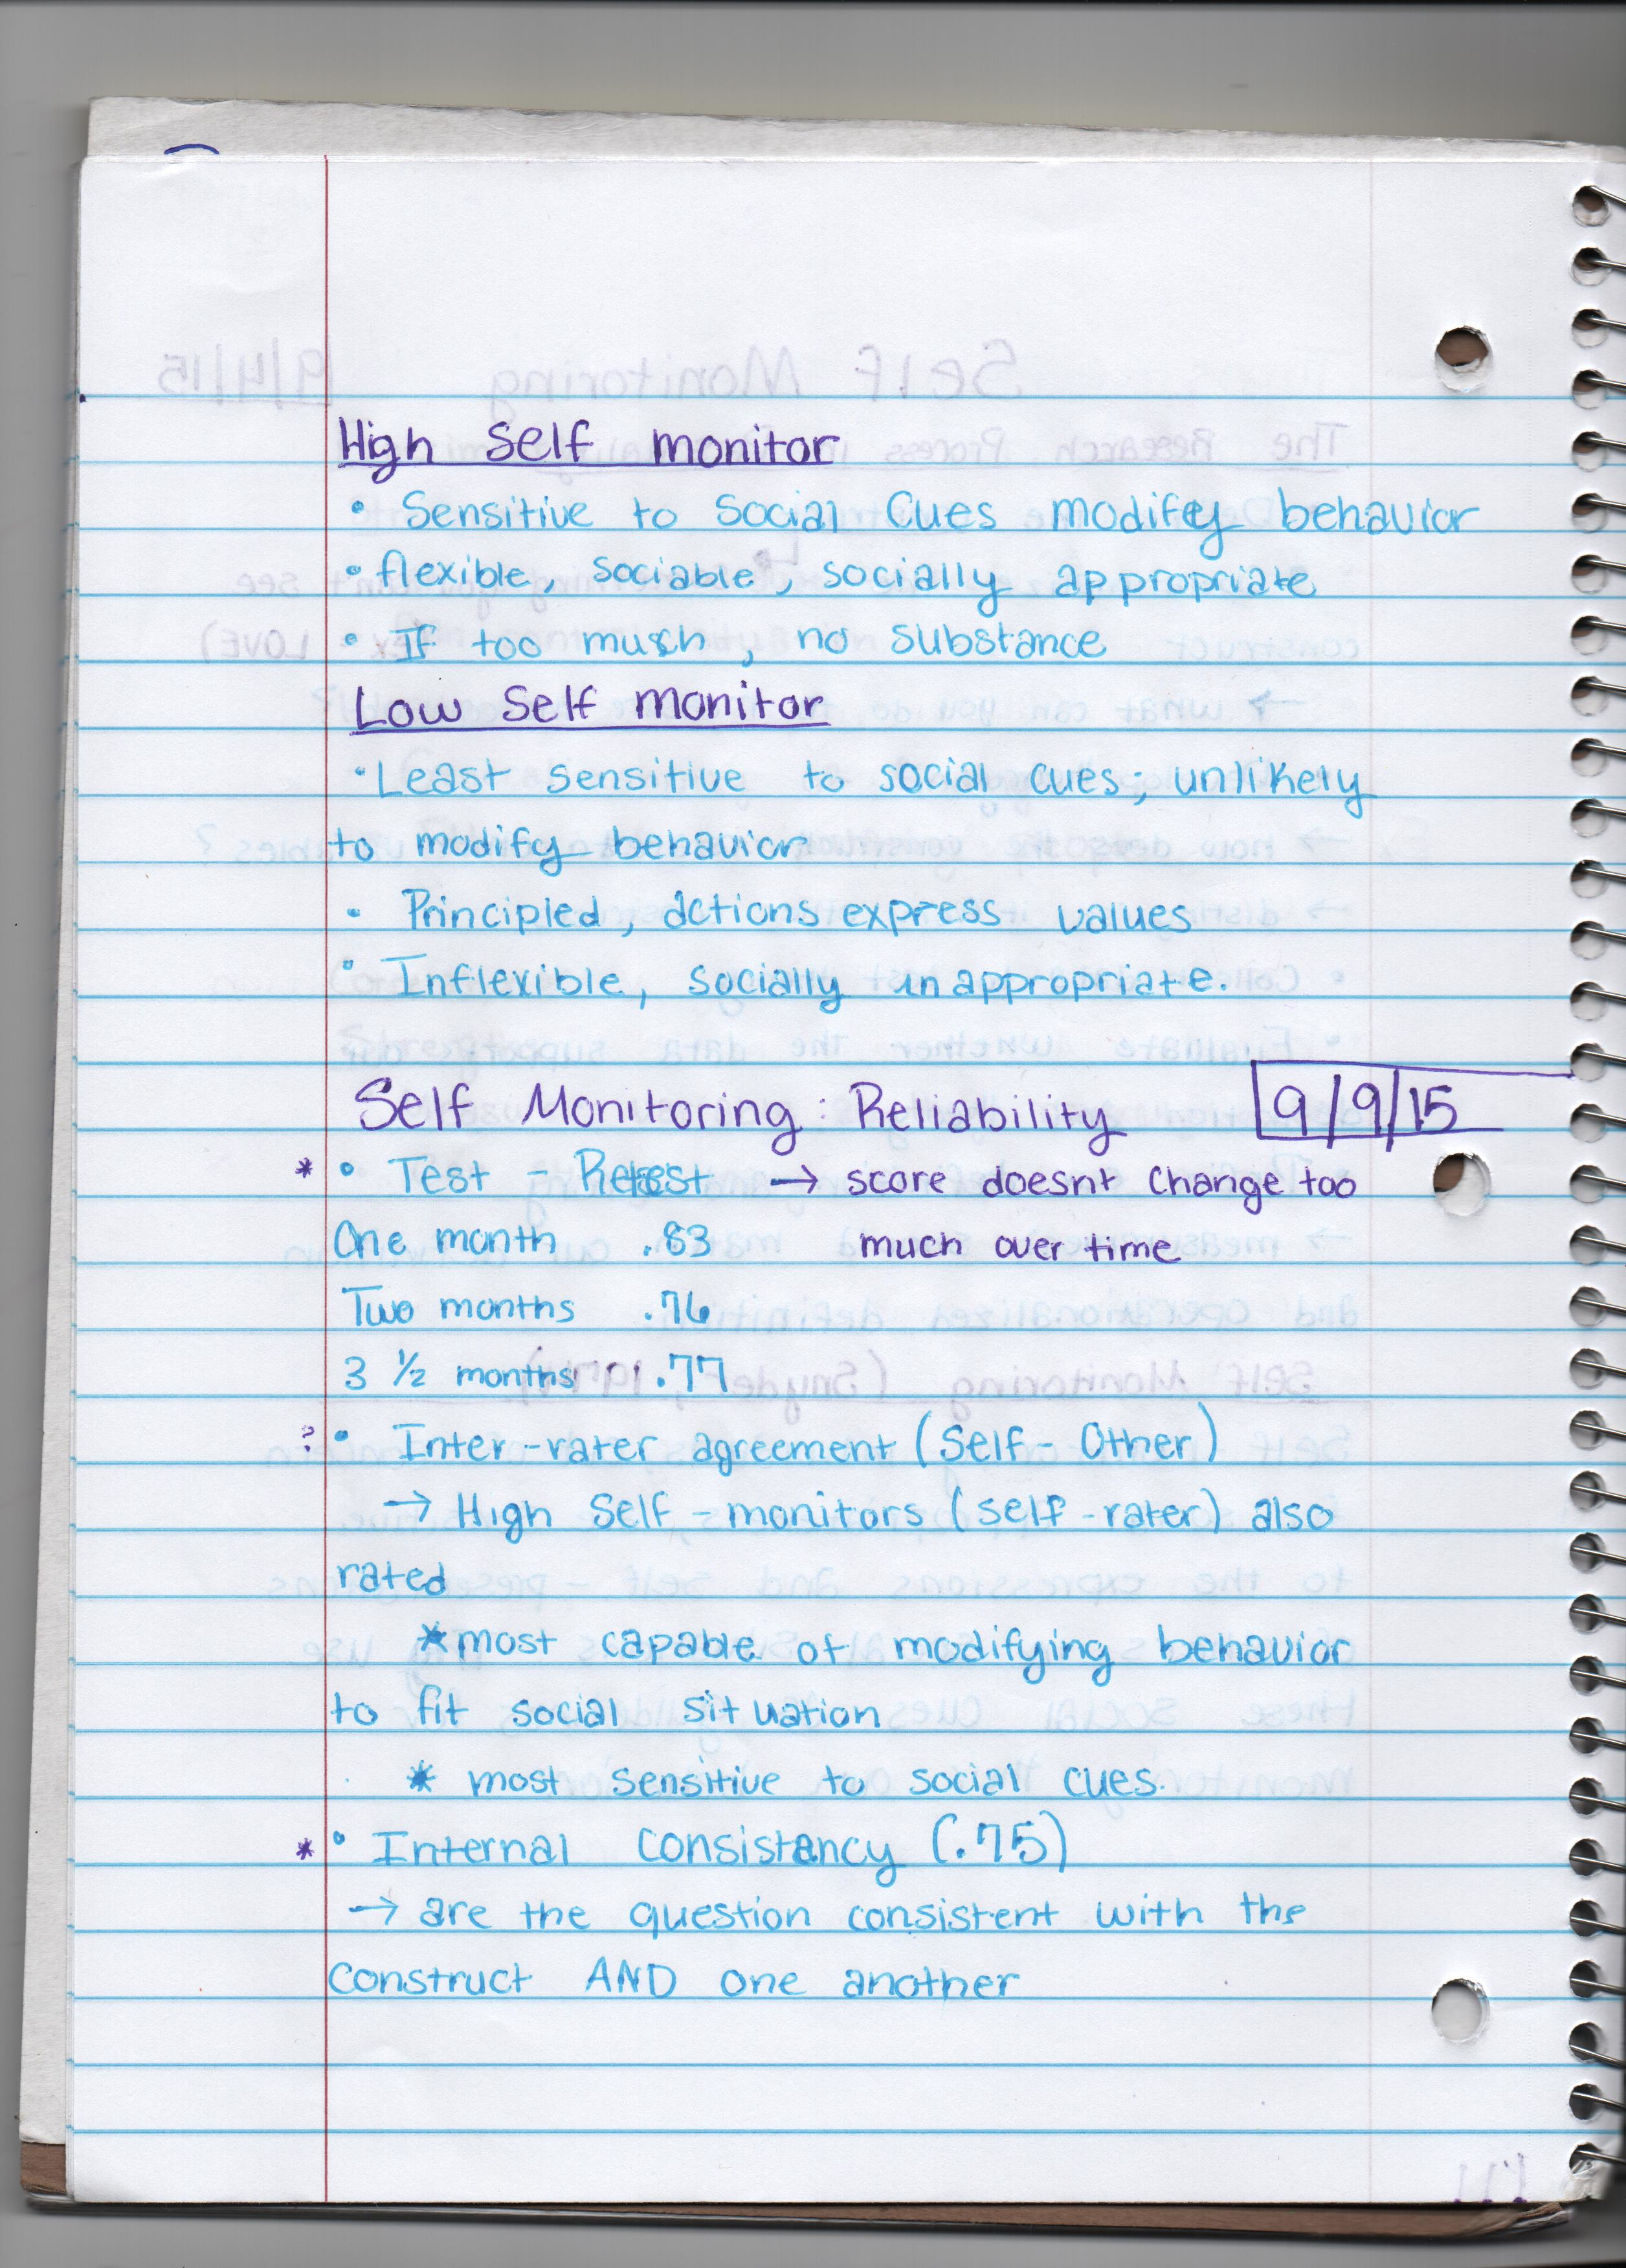 High Self monitor
• Sensitive to Social Cues modify behavior
• flexible, sociable, socially appropriate
• If too much, no substance
Low Self monitor
• Least sensitive to social cues; unlikely
to modify behavior
• Principled, actions express values
• Inflexible, socially unappropriate.
Self Monitoring: Reliability 9/9/15
* • Test - Retest → score doesnt change too
One month .83 much over time
Two months .76
3 1/2 months .77
? • Inter-rater agreement (Self-Other)
→ High Self-monitors (self-rater) also
rated
* most capable of modifying behavior
to fit social situation
* most sensitive to social cues.
* • Internal consistancy (.75)
→ are the question consistent with the
construct AND one another